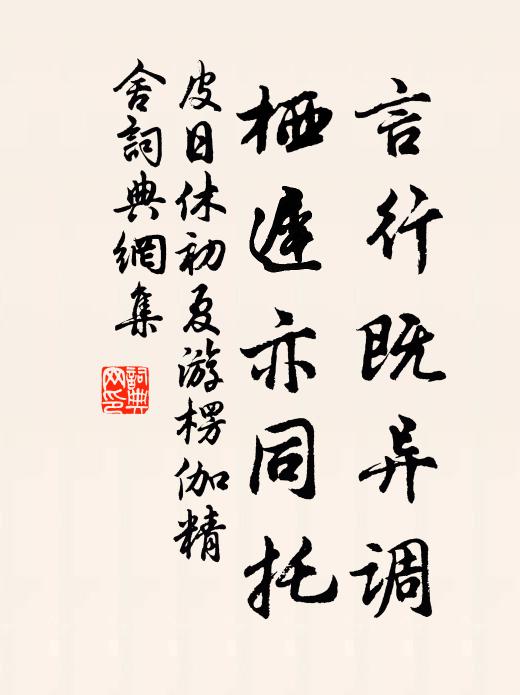 言行既异调
栖遲亦同托
皮日休初夏游楞伽精
舍詞典網集
詞典
网印